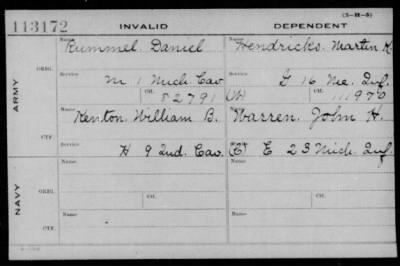 (3-H-5)
113172 INVALID DEPENDENT
Name Name
Rummel, Daniel Hendricks, Martin K.
ARMY
ORIG. Service Service
M 1 Mich Cav F 16 Me. Inf.
Ctf. 52791 (W) Ctf. 111970
Name Name
Kenton, William B. Warren, John H.
CTF. Service Service
H 9 Ind. Cav. (C) E 23 Mich. Inf
NAVY
Name Name
ORIG. Service Ctf. Service Ctf.
Name Name
CTF. Service Service